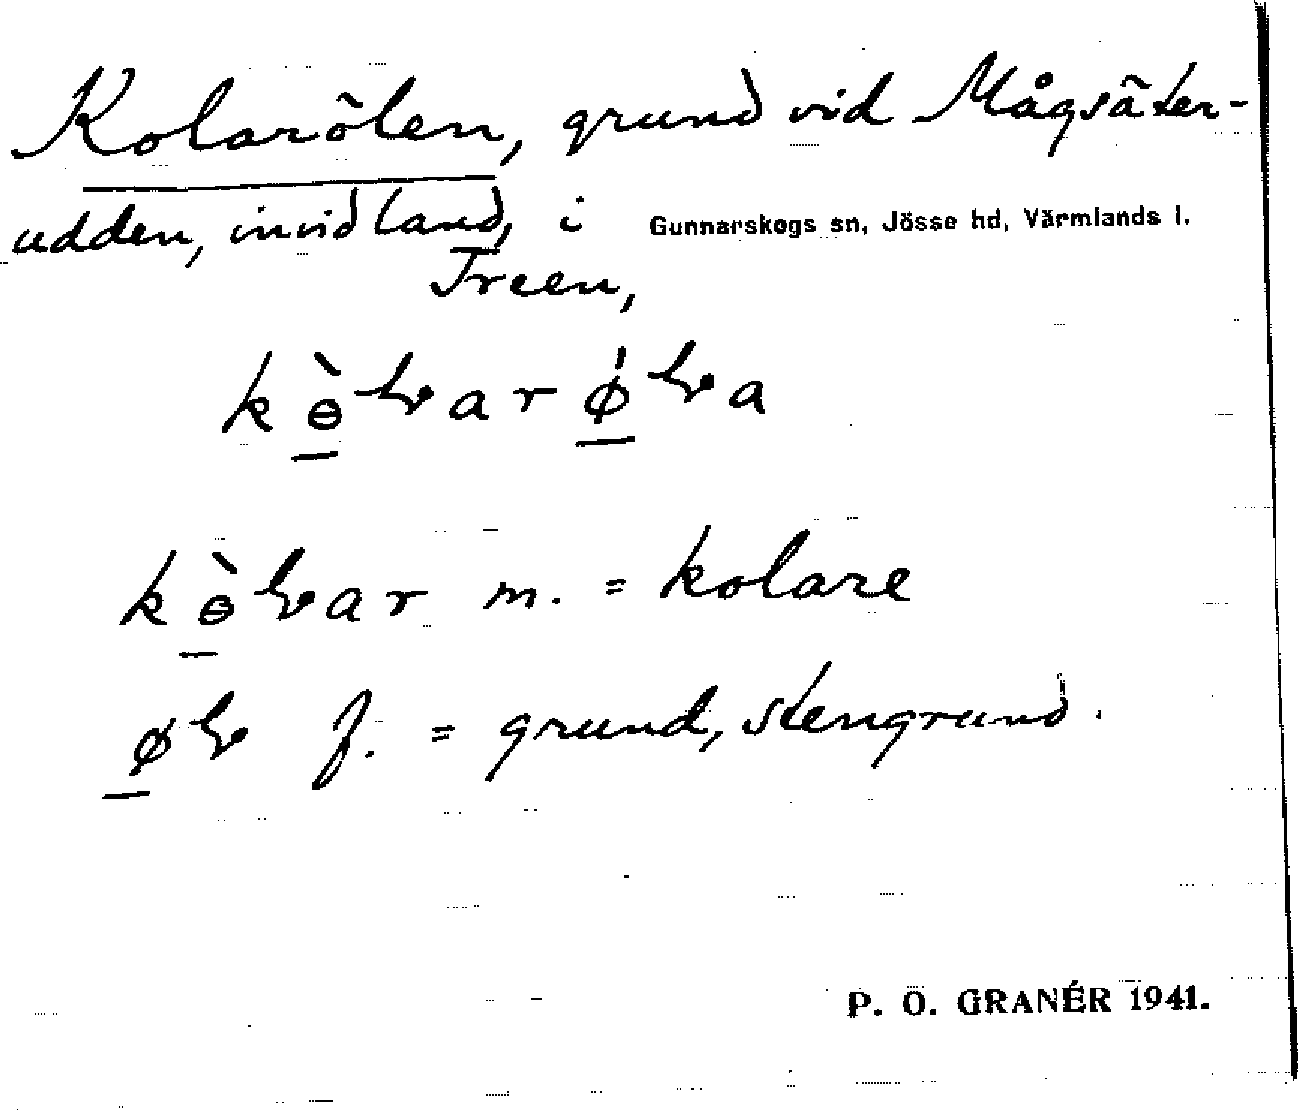 Kolarölen, grund vid Mågsäter-
udden, invid land, i Gunnarskogs sn, Jösse hd, Värmlands l.
Treen,
kɵ̀ɽarǿɽa
kɵ̀ɽar m. = kolare
øɽ f. = grund, stengrund.
P. Ö. GRANÉR 1941.